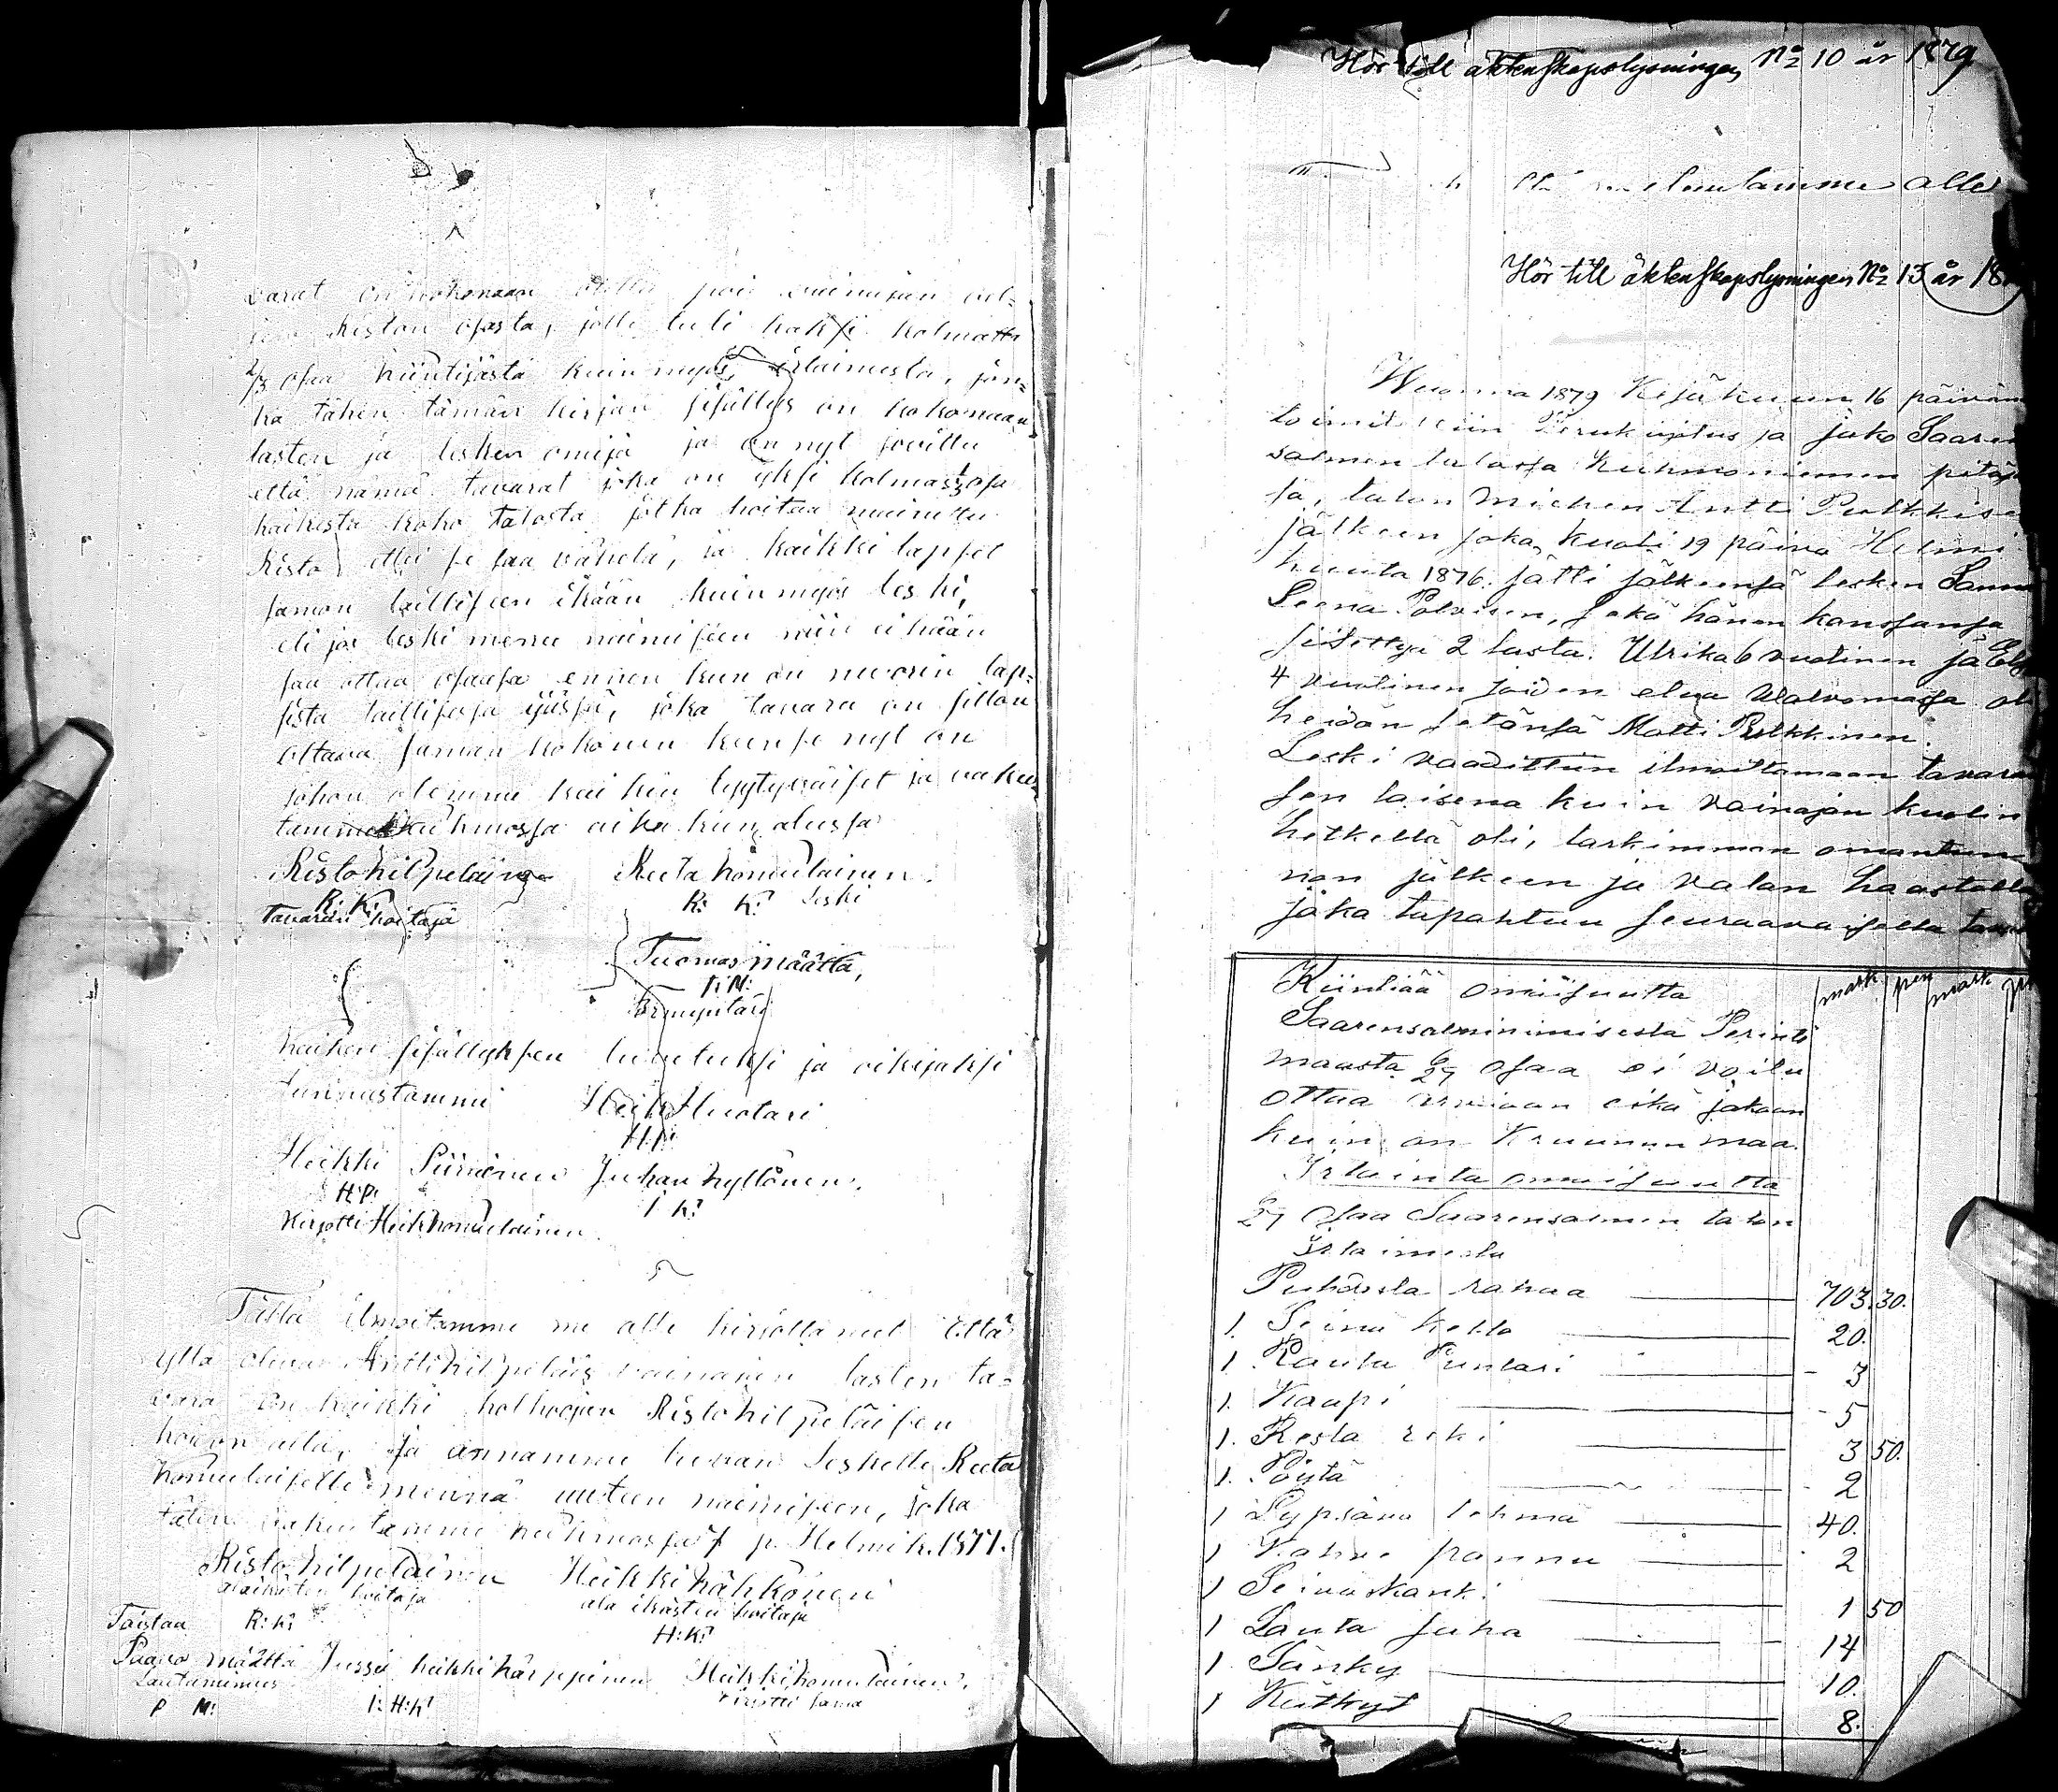 varat on kokonaan pois vainajan vel-
jen Riston osasta, jolle tuli kaksi kolmatta
2/3 osaa kiintijästä kuin myös irtaimesta, jon-
ka tähen tämän kirjan sisällys on kokonaan
lasten ja lesken omija ja on nyt sovittu
että nämä tavarat joka on yksi kolmas 1/3 osa
kaikesta koko talosta jotka hoitaa mainittu
Risto ettei se saa vähetä, ja kaikki lapset
saman lailliseen ikään kuin myös leski,
eli jos leski menee naimiseen niin ei hään
saa ottaa osaasa ennen kun on nuorin lap-
sista laillisesa ijäsä, joka tavara on sillon
ottava saman kokonen kun se nyt on
johon olemme kaikin tyytyväiset ja vakuu
tamme Kuhmossa aika kun alussa
Risto Kilpeläinen Reeta Komulainen.
R: K: R: K: Leski
tavaran hoitaja
Tuomas Määttä,
T: M:
Kaiken sisällyksen luvutuksi ja oikijaksi
tunnustamme Heik Huotari
H: H:
Heikki Piirainen Juhan Kyllönen.
H: P: I K:
Kirjotti Heik Komulainen.
Tällä ilmoitamme me alle kirjottaneet Että
yllä olevan Antti Kilpeläis vainajan lasten ta-
vara on kaikki holhoojan Risto Kilpeläisen
hoion alla, Ja annamme luvan Leskelle Reeta
Komulaiselle mennä uuteen naimiseen, joka
täten vakutamme Kuhmossa 7 p. Helmik. 1877.
Risto Kilpeläinen Heikki Kähkönen
alaikästen hoitaja ala ikästen hoitaja
Toistaa R: K: H: K:
Paavo Määttä Jussi Heikki Kärppinen Heikki Komulainen.
Lautamies Kirjotti sama
P M: I: H: K:
Hör till äktenskapslysningen No 10 år 1879
alle
Hör till äktenskapslysningen No 13 år 18
Wuonna 1879 Kesäkuun 16 päivän
toimitettiin Perukirjotus ja jako Saaren
salmen talossa Kuhmoniemen pitäjä
sä, talon miehen Antti Pulkkise
jälkeen joka kuoli 19 päivä Helmi
kuuta 1876. jätti jälkeensä lesken Sanna
Leena Polvisen, sekä hänen kanssansa
siitettyä 2 lasta. Ulrika 6 vuotinen ja
4 vuotinen joiden etua valvomassa oli
heidän setänsä Matti Pulkkinen.
Leski vaadittiin ilmoittamaan tavara
sen laisena kuin vainajan kuolin
hetkellä oli, tarkimman omantun
non jälkeen ja valan haastolla
joka tapahtuu seuraavaisella tava
Kiintiää omaisuutta mark pen mark
Saarensalmi nimisestä Perintö
maasta 6/27 osaa ei voitu
ottaa arvioon eikä jakoon
kuin on Kruunun maa.
Irtainta omaisuutta
6/27 osaa Saarensalmen talon
irtaimesta
Puhdasta rahaa 703. 30.
1. Seinä kello 20.
1 Rauta Puntari 3
1. Kaapi 5
1. Kesta reki 3 50.
1. Pöytä 2
1 Lypsävä lehmä 40.
1 Kahve pannu 2
1 Seiväskanki 1 50
1 Lauta suha 14
1 Sänky 10.
1 Kätkyt 8.